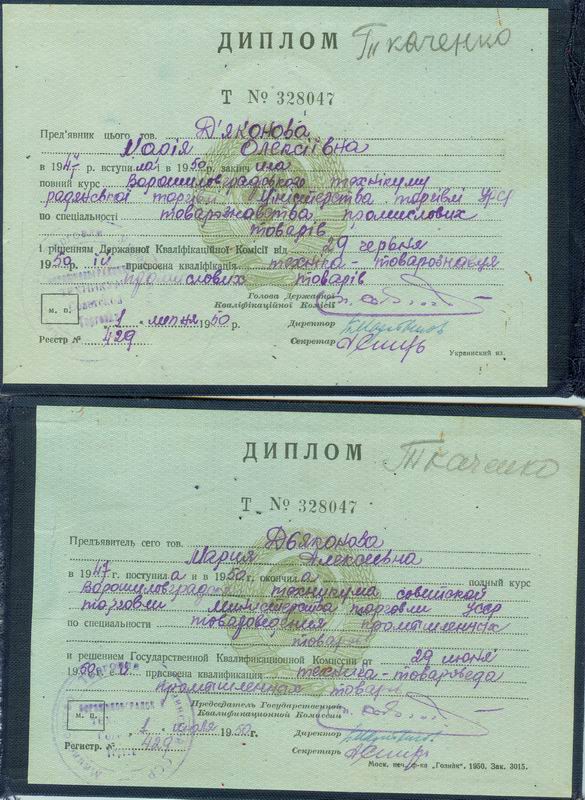 ДИПЛОМ Ткаченко
Т № 328047
Пред'явник цього тов. Д'яконова
Марія Олексіївна
в 1947 р. вступила і в 1950 р. закінчила
повний курс Ворошиловградського технікуму
радянської торгівлі Міністерства торгівлі УРСР
по спеціальності товарознавства промислових
товарів
і рішенням Державної Кваліфікаційної Комісії від 29 червня
1950 р. їй присвоєна кваліфікація техніка-товарознавця
промислових товарів
Голова Державної
Кваліфікаційної Комісії
М. П.
1 липня 1950 р.
Директор
Реєстр № 429
Секретар
Украинский яз.
ДИПЛОМ Ткаченко
Т № 328047
Предъявитель сего тов. Дьяконова
Мария Алексеевна
в 1947 г. поступила и в 1950 г. окончила полный курс
Ворошиловградского техникума советской
торговли министерства торговли УССР
по специальности товароведения промышленных
товаров
и решением Государственной Квалификационной Комиссии от 29 июня
1950 г. ей присвоена квалификация техника-товароведа
промышленных товаров
Председатель Государственной
Квалификационной Комиссии
М. П.
ВОРОШИЛОВГРАДСК
1 июля 1950 г.
Директор
Регистр. № 429
Секретарь
Моск. печ. ф-ка „Гознак". 1950. Зак. 3015.